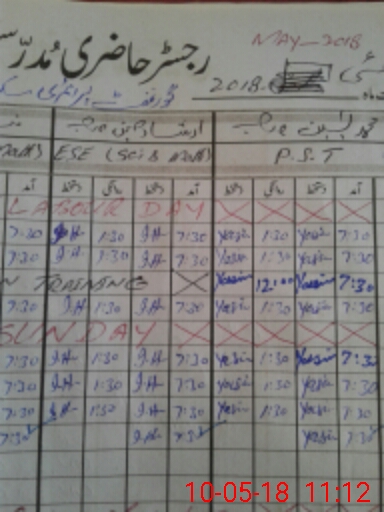 MAY-2018
رجسٹر حاضری مُدرّسین
2018
گورنمنٹ پرائمری سک
ESE (Sci & Math) P.S.T
آمد دستخط روانگی دستخط آمد دستخط روانگی دستخط آمد
LABOUR DAY
7:30 J.A 1:30 J.A 7:30 Yasin 1:30 Yasin 7:30
7:30 J.A 1:30 J.A 7:30 Yasin 1:30 Yasin 7:30
N TRAINING Yasin 12:00 Yasin 7:30
7:30 J.A 1:30 J.A 7:30 Yasin 1:30 Yasin 7:30
SUNDAY
7:30 J.A 1:30 J.A 7:30 Yasin 1:30 Yasin 7:30
7:30 J.A 1:30 J.A 7:30 Yasin 1:30 Yasin 7:30
7:30 J.A 1:30 J.A 7:30 Yasin 1:30 Yasin 7:30
7:30 J.A 7:30 Yasin 7:30
10-05-18 11:12